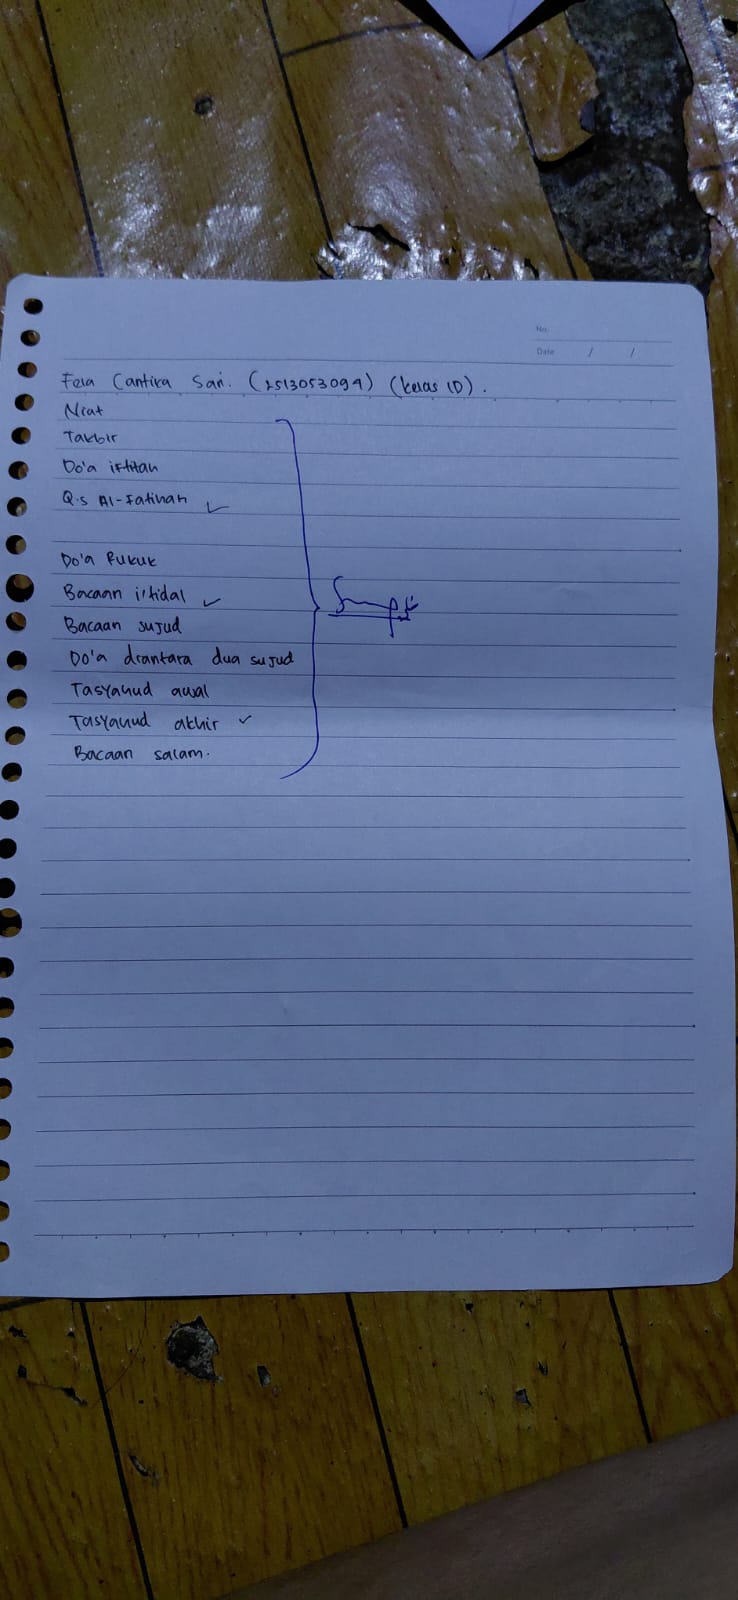 No.
Date / /
Fera Cantika Sari. (2513053094) (Kelas 1D).
Niat
Takbir
Do'a iftitah
Q.s Al-Fatihah ✓
Do'a Rukuk
Bacaan i'tidal ✓
Bacaan sujud
Do'a diantara dua sujud
Tasyahud awal
Tasyahud akhir ✓
Bacaan salam.